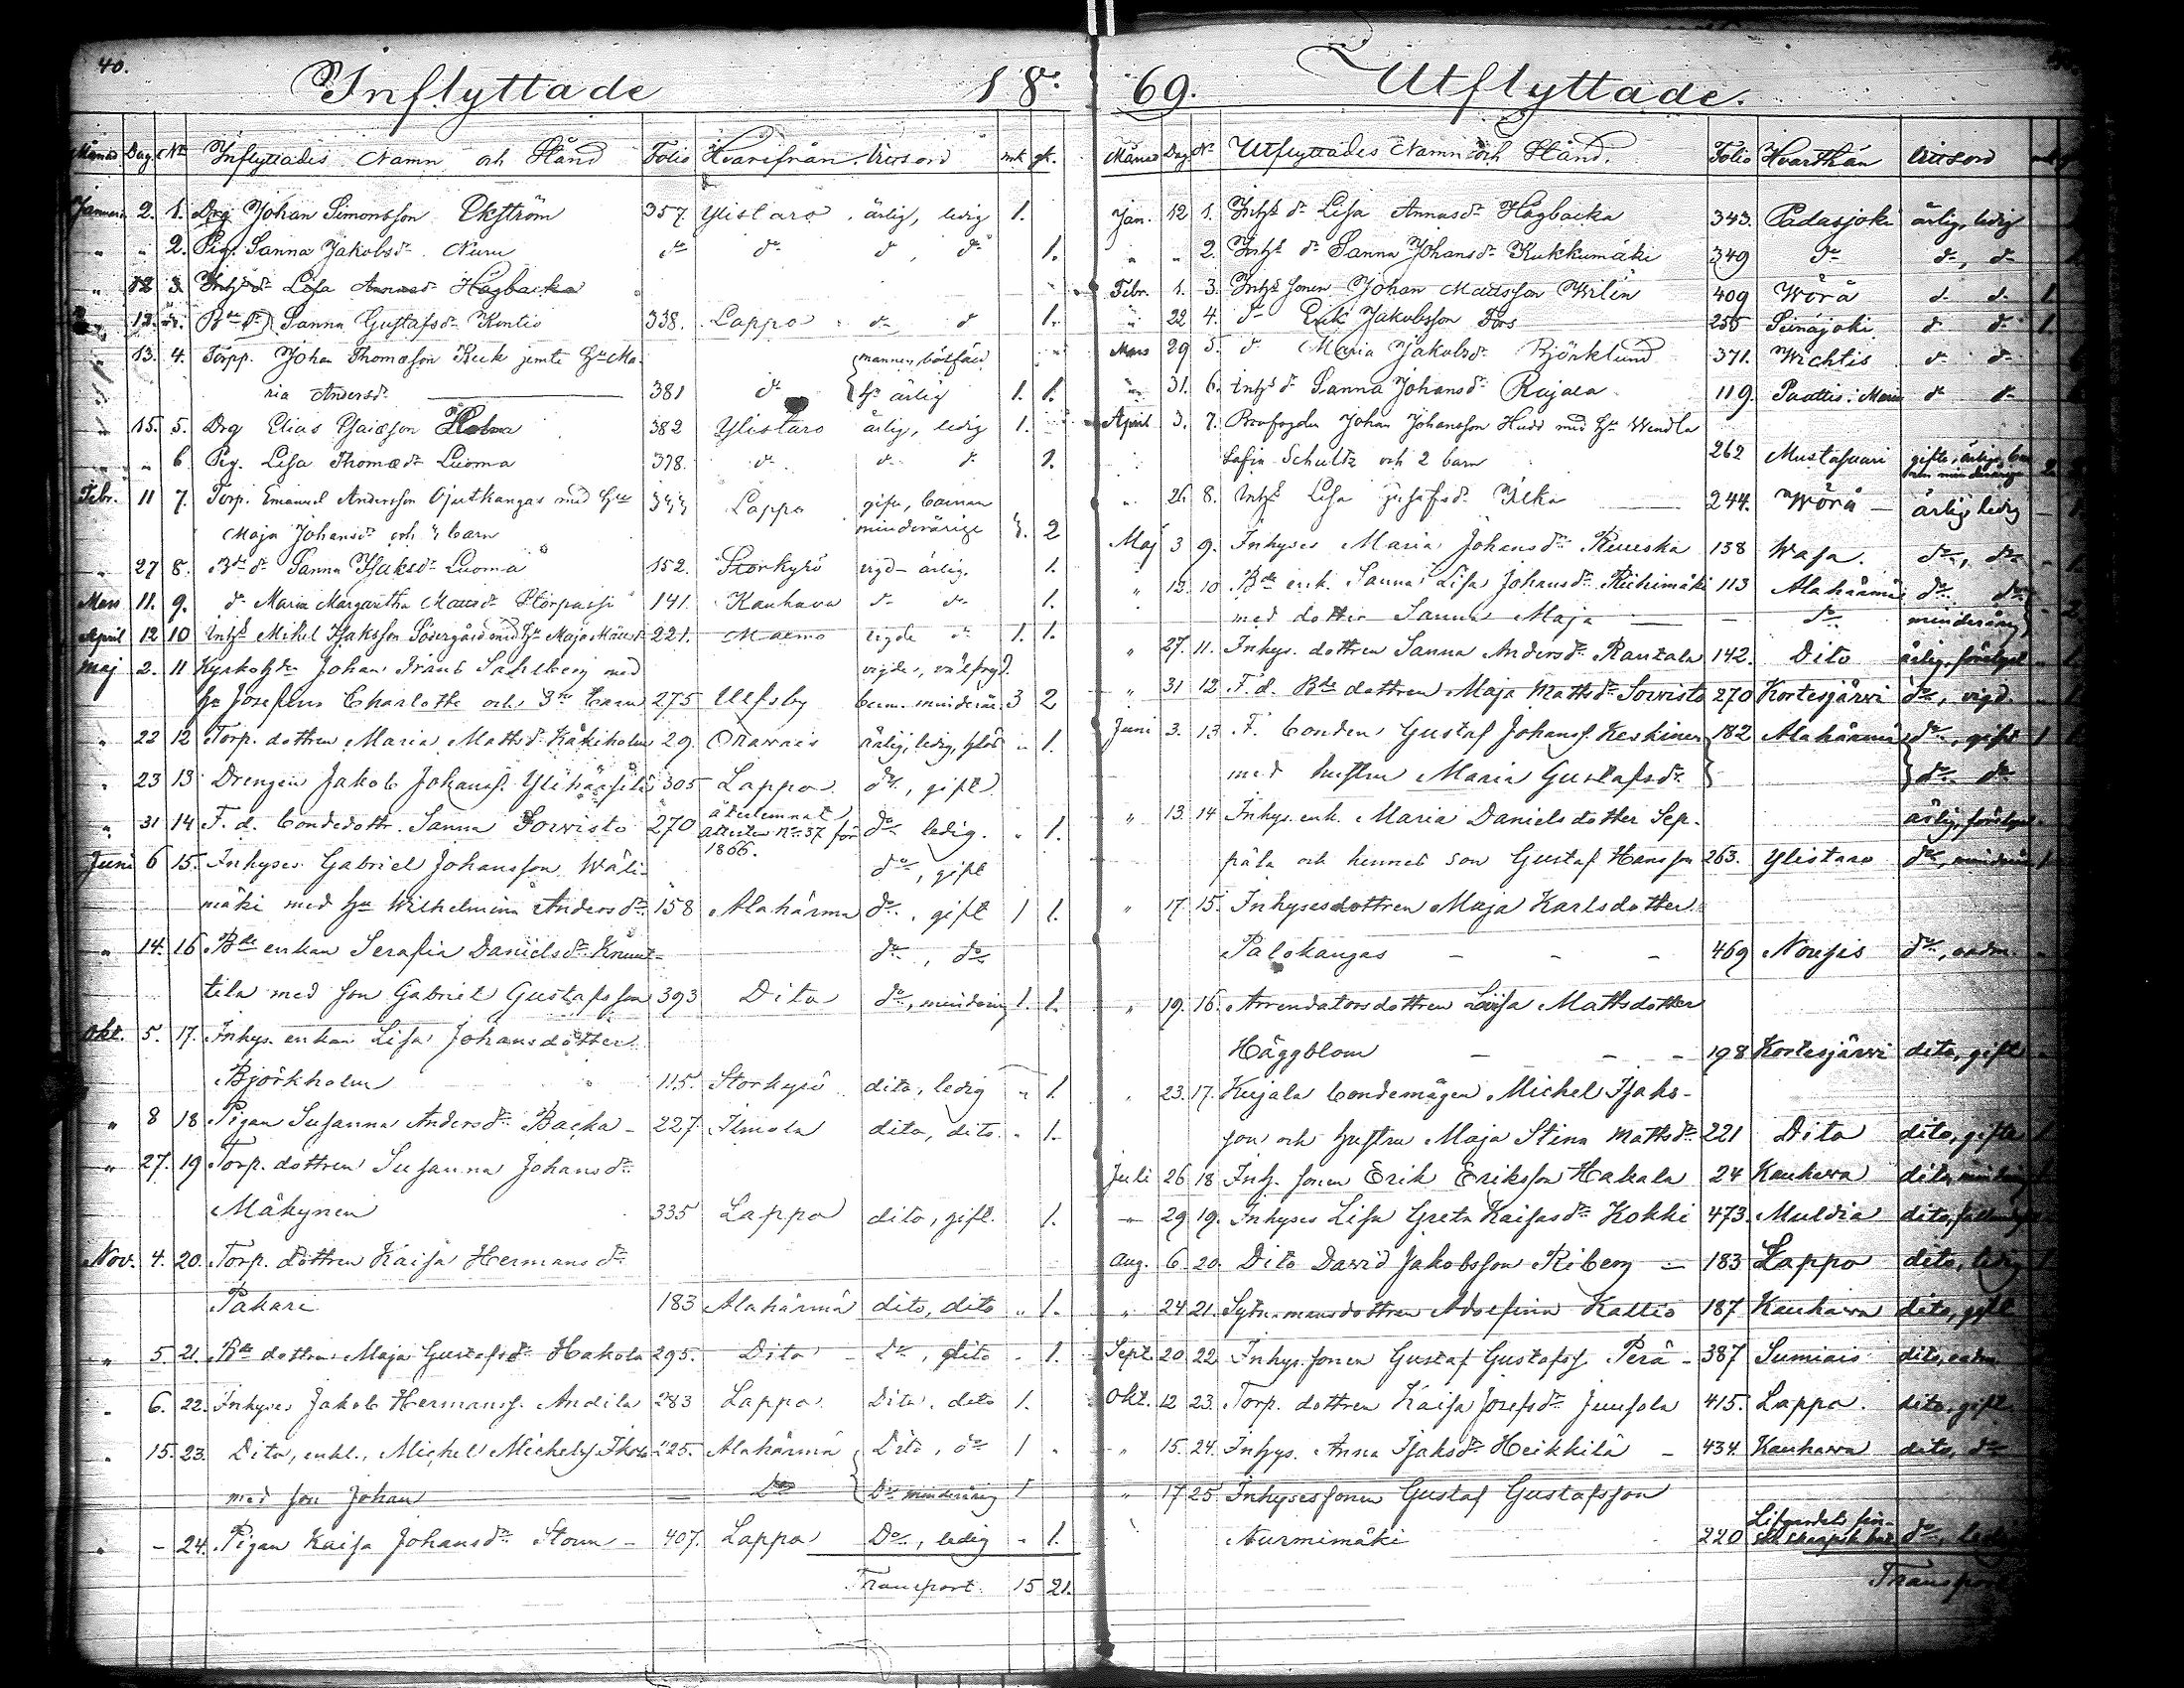 40.
Inflyttade 18
Månad Dag No Inflyttades Namn och Stånd Folio Hvarifrån Vitsord mk. qk.
Januari 2. 1. Drg Johan Simonsson Ekström 357 Ylistaro ärlig, ledig 1.
" " 2. Pig. Sanna Jakobsdr. Nuru dr dr d, dr 1.
" 12 3 Inhs dr Lisa Annasdr Hagbacka
12. Bde dr Sanna Gustafsdr Kontio 338. Lappo dr d 1.
" 13. 4. Torpp. Johan Thomasson Reek jemte Hu Ma- mannen
ria Andersdr 381 dr Hu ärlig 1. 1.
" 15. 5. Drg Elias Esaiasson 382 Ylistaro ärlig, ledig 1.
" " 6 Pig. Lisa Thomædr Luoma 378. dr dr dr 1.
Febr. 11 7. Torp. Emanuel Andersson Ojutkangas med Hu Lappo gifte, barnen
Maja Johansdr och barn minderårige 2
" 27 8. Bde dr Sanna Isaksdr Luoma 152. Storkyrö vigd ärlig. 1.
Mars 11. 9. dr Maria Margaretha Mattsdr Storpassi 141. Kauhava dr dr 1.
April 12 10 Inhs Mikel Isaksson Södergård med Hu Maja Mattsdr 221. vigde dr 1. 1.
Maj 2. 11 Johan Frans Sahlberg med vigde, välfrejd.
Hu Josefina Charlotta och 3ne barn 275 Ulfsby barn. minderår. 3 2
" 22 12 Torp. dottren Maria Mattsdr Kåkiholm 29. Oravais ärlig, ledig " 1.
" 23 13 Drengen Jakob Johanss. Ylihärsilä 305 Lappo do, gift
" 31 14 F. d. bondedottr. Sanna Sorvisto 270 återlemnat attesten No 37 för 1866. do ledig. " 1.
Juni 6 15. Inhyses Gabriel Johansson Wäli- do, gift
mäki med Hu Wilhelmina Andersdr 158 Alahärmä do, gift 1 1.
" 14. 16 Bde enkan Serafia Danielsdr Knuut- do, do
tila med son Gabriel Gustafsson 393 Dito do, minderårig 1. 1.
Okt. 5. 17. Inhys. enkan Lisa Johansdotter
Björkholm 115. Storkyrö dito, ledig " 1.
" 8 18 Pigan Susanna Andersdr Backa 227 Ilmola dito, dito. " 1.
" 27. 19 Torp. dottren Susanna Johansdr
Mäkynen 335 Lappo dito, gift. 1.
Nov. 4. 20. Torp. dottren Kaisa Hermansdr
Pakari 183 Alahärmä dito, dito " 1.
" 5. 21. Bde dottren Maja Gustafsdr Hakola 295. Dito do, dito " 1.
" 6. 22. Inhyses Jakob Hermanss. Andila 283 Lappo Dito, dito 1.
" 15. 23. Dito, enkl., Michel Michelss. 225. Alahärmä Dito, do 1 "
med son Johan — Do Do minderårig 1
" - 24. Pigan Kaisa Johansdr Storm 407. Lappo Do, ledig " 1.
Transport. 15 21.
69. Utflyttade.
Månad Dag No Utflyttades Namn och Stånd. Folio Hvarthän Vitsord
Jan. 12 1. Inhs dr Lisa Annasdr Hagbacka 343. Padasjoki ärlig, ledig
" " 2. Inhs dr Sanna Johansdr Kukkumäki 349 dr dr, dr
Febr. 1. 3. Inhs sonen Johan Mattsson Wilén 409 Wörå d. d. 1.
" 22 4. dr Erik Jakobsson Fors 255 Seinäjoki d. dr 1.
Mars 29 5. d Maria Jakobsdr Björklund 371. Wichtis dr dr
" 31. 6. Inhs dr Sanna Johansdr Rajala 119. Paattis dr dr
April 3. 7. Johan Johansson Hudd med Hu Wendla
Sofia Schultz och 2 barn 262 Mustasaari gifte, ärlige
" 26. 8. Inhs Lisa Josefsdr Ilka 244. Wörå ärlig, ledig
Maj 3 9. Inhyses Maria Johansdr Ruuska 138 Wasa. do, do
" 13. 10. Bde enk. Sanna Lisa Johansdr Riihimäki 113 Alahärmä do do
med dotter Sanna Maja — — do minderårig
" 27. 11. Inhys. dottren Sanna Andersdr Rantala 142. Dito ärlig,
" 31 12. F. d. Bde dottren Maja Mattsdr Sorvisto 270 Kortesjärvi do, vigd.
Juni 3. 13. F. bonden Gustaf Johanss. Keskinen 182 Alahärmä do, gift 1
med hustru Maria Gustafsdr do do
" 13. 14 Inhys. enk. Maria Danielsdotter Sep- ärlig,
pälä och hennes son Gustaf Hansson 263. Ylistaro do, minderår
" 17 15. Inhysesdottren Maja Karlsdotter
Palokangas — — — 469 Nousis do,
" 19. 16. Arrendatorsdottren Lovisa Mattsdotter
Häggblom — — — 198 Kortesjärvi dito, gift
" 23. 17. Kujala bondemågen Michel Isaks-
son och hustru Maja Stina Mattsdr 221 Dito dito, gifte
Juli 26 18 Inh. sonen Erik Eriksson Hakala 24 Kauhava dito,
" 29 19. Inhyses Lisa Greta Kaisasdr Kokki 473. Muldia dito,
Aug. 6. 20. Dito David Jakobsson Riberg — 183 Lappo dito, ledig
" 24 21. Sytn.mansdottren Adolfina Kallio 187 Kauhava dito, gift
Sept. 20 22 Inhys. sonen Gustaf Gustafss. Perä - 387 Sumiais dito,
Okt. 12 23. Torp. dottren Kaisa Josefsdr Juusola 415. Lappo. dito, gift.
" 15. 24. Inhys. Anna Isaksdr Heikkilä — 434. Kauhava dito, do
" 17 25 Inhysessonen Gustaf Gustafsson
Nurmimäki 220 Lifgardets do, ledig
Transport